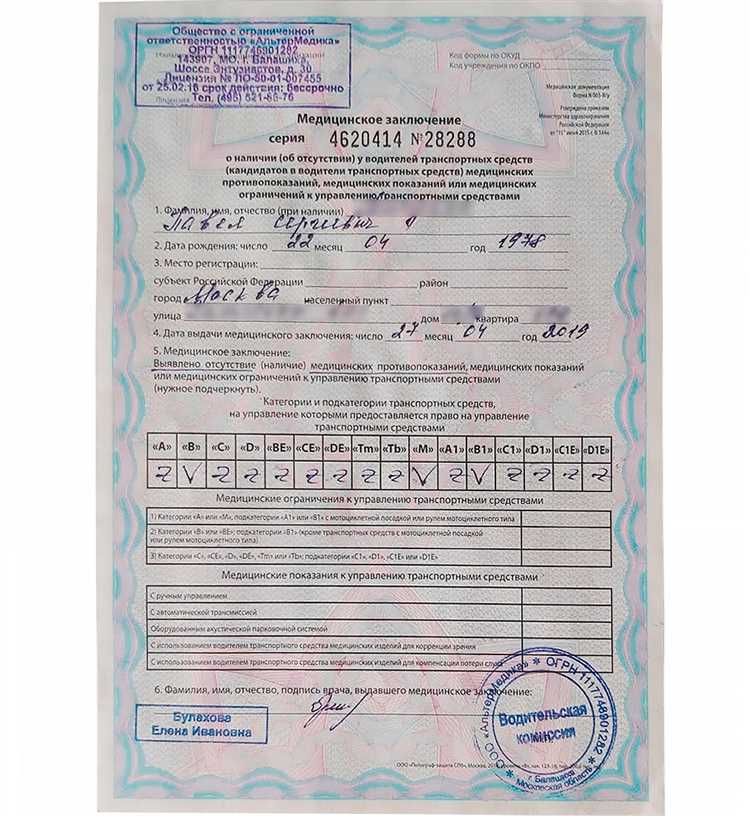 Общество с ограниченной
ответственностью «АльтерМедика»
ОГРН 1117746901282
143907, МО, г. Балашиха,
Шоссе Энтузиастов, д. 30
Лицензия № ЛО-50-01-007455
от 25.02.16 срок действия: бессрочно
Тел. (495) 521-86-76
Код формы по ОКУД
Код учреждения по ОКПО
Медицинская документация
Форма N 003-В/у
Утверждена приказом
Министерства здравоохранения
Российской Федерации
от "15" июня 2015 г. N 344н
Медицинское заключение
серия 4620414 №28288
о наличии (об отсутствии) у водителей транспортных средств
(кандидатов в водители транспортных средств) медицинских
противопоказаний, медицинских показаний или медицинских
ограничений к управлению транспортными средствами
1. Фамилия, имя, отчество (при наличии)
Павел Сергиевич
2. Дата рождения: число 22 месяц 04 год 1978
3. Место регистрации:
субъект Российской Федерации район
город Москва населенный пункт
улица дом квартира
4. Дата выдачи медицинского заключения: число 27 месяц 04 год 2019
5. Медицинское заключение:
Выявлено отсутствие (наличие) медицинских противопоказаний, медицинских показаний
или медицинских ограничений к управлению транспортными средствами
(нужное подчеркнуть).
Категории и подкатегории транспортных средств,
на управление которыми предоставляется право на управление
транспортными средствами
«A» «B» «C» «D» «BE» «CE» «DE» «Tm» «Tb» «M» «A1» «B1» «C1» «D1» «C1E» «D1E»
Z V Z Z Z Z Z Z Z V Z V Z Z Z Z
Медицинские ограничения к управлению транспортными средствами
1) Категории «A» или «M», подкатегории «A1» или «B1» с мотоциклетной посадкой или рулем мотоциклетного типа
2) Категории «B» или «BE»; подкатегории «B1» (кроме транспортных средств с мотоциклетной посадкой
или рулем мотоциклетного типа)
3) Категории «C», «CE», «D», «DE», «Tm» или «Tb»; подкатегории «C1», «D1», «C1E» или «D1E»
Медицинские показания к управлению транспортными средствами
С ручным управлением
С автоматической трансмиссией
Оборудованным акустической парковочной системой
С использованием водителем транспортного средства медицинских изделий для коррекции зрения
С использованием водителем транспортного средства медицинских изделий для компенсации потери слуха
6. Фамилия, имя, отчество, подпись врача, выдавшего медицинское заключение:
Булахова
Елена Ивановна
ООО «АльтерМедика» * ОГРН 1117746901282 *
г. Балашиха
Московская область
Водительская
комиссия
М.П.